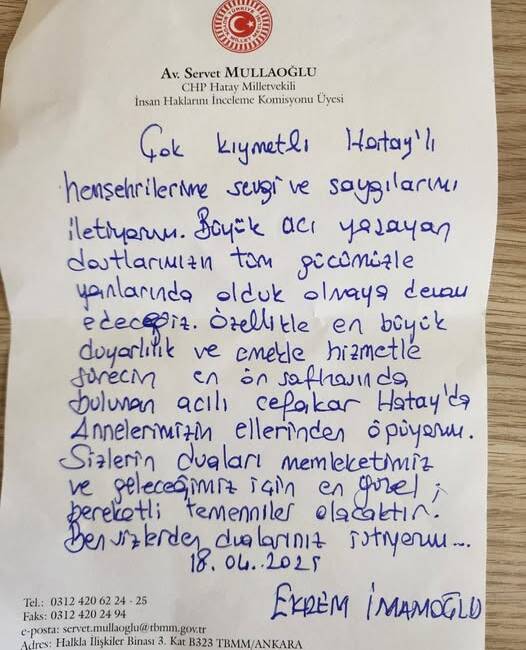 Av. Servet MULLAOĞLU
CHP Hatay Milletvekili
İnsan Haklarını İnceleme Komisyonu Üyesi
Çok kıymetli Hatay'lı
hemşehrilerime sevgi ve saygılarımı
iletiyorum. Büyük acı yaşayan
dostlarımızın tüm gücümüzle
yanlarında olduk olmaya devam
edeceğiz. Özellikle en büyük
duyarlılık ve emekle hizmetle
sürecin en ön safhasında
bulunan acılı cefakar Hatay'da
Annelerimizin ellerinden öpüyorum.
Sizlerin duaları memleketimiz
ve geleceğimiz için en güzel,
bereketli temenniler olacaktır.
Ben sizlerden dualarınız istiyorum...
18.04.2025
EKREM İMAMOĞLU
Tel.: 0312 420 62 24 - 25
Faks: 0312 420 24 94
e-posta: servet.mullaoglu@tbmm.gov.tr
Adres: Halkla İlişkiler Binası 3. Kat B323 TBMM/ANKARA